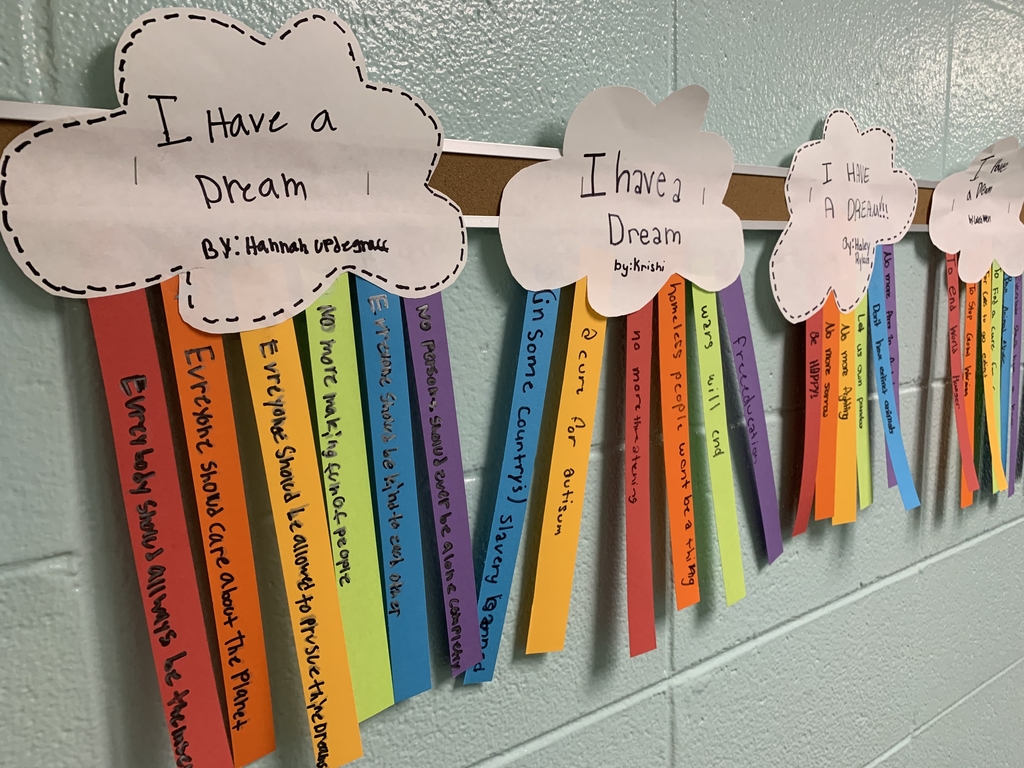 I Have a
Dream
BY: Hannah updegrace
Everybody should allways be themse
Evreyone should care about the Planet
Evreyone should be allowed to prusue thire Dreams
No more making fun of people
Evreyone should be kind to each other
No persons should ever be alone completly
I have a
Dream
by: Krishi
(in some countrys) Slavery banned
a cure for autisum
no more
homeless people wont be a thing
wars will end
free education.
I HAVE
A DREAM!!!
By: Haley
Be HAPPY!
No more sorrow
No more fighting
Let us own pandas
Don't have extinct animals
No more
I have
a Dream
To end World Hunger
To Stop Global Warming
To Find a cure